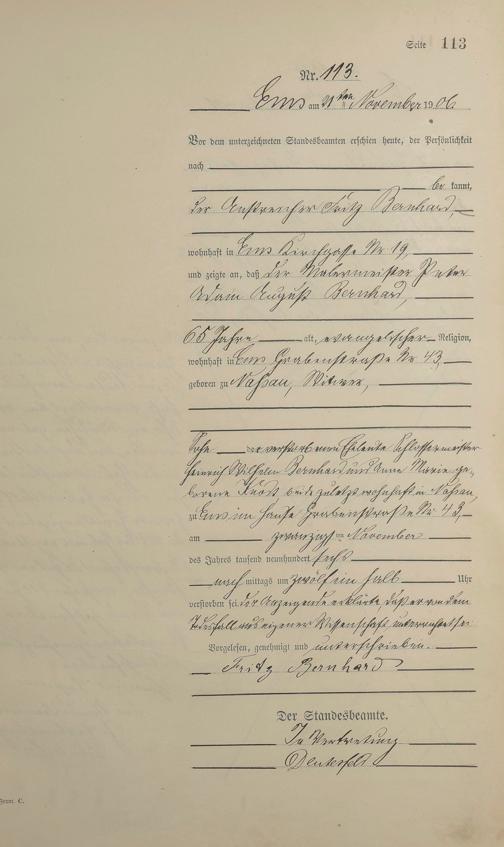 Seite 113
Nr. 113.
Ems am 21ten November 1906
Vor dem unterzeichneten Standesbeamten erschien heute, der Persönlichkeit
nach
be kannt,
der Anstreicher Fritz Bernhard,
wohnhaft in Ems Kirchgasse Nr 19,
und zeigte an, daß der Malermeister Peter
Adam August Bernhard,
65 Jahre alt, evangelischer Religion,
wohnhaft in Ems Grabenstraße Nr 43,
geboren zu Nassau, Witwer,
Sohn der verstorbenen Eheleute Schlossermeister
Heinrich Wilhelm Bernhard und Anna Marie ge-
borene beide zuletzt wohnhaft in Nassau,
zu Ems im Hause Grabenstraße Nr 43,
am zwanzigsten November
des Jahres tausend neunhundert sechs
nach mittags um zwölf ein halb Uhr
verstorben sei der Anzeigende erklärte, daß er von dem
Todesfall aus eigener Wissenschaft unterrichtet sei
Vorgelesen, genehmigt und unterschrieben.
Fritz Bernhard
Der Standesbeamte.
In Vertretung
Form. C.